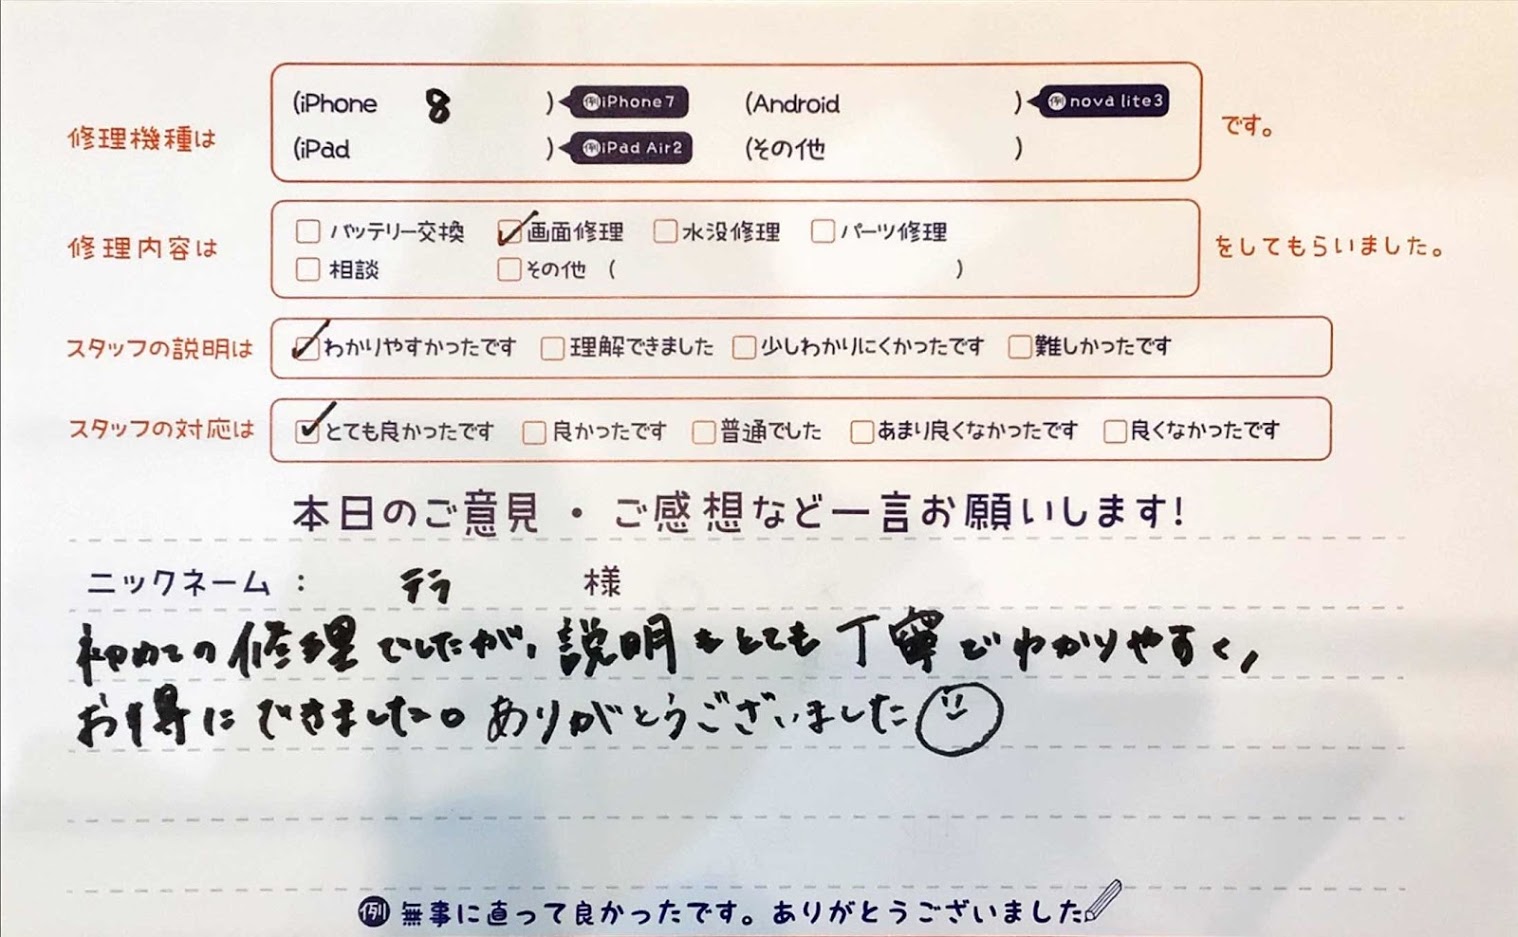 修理機種は (iPhone 8 ) 例iPhone7 (Android ) 例nova lite3 です。
(iPad ) 例iPad Air2 (その他 )
修理内容は バッテリー交換 画面修理 水没修理 パーツ修理 をしてもらいました。
相談 その他 ( )
スタッフの説明は わかりやすかったです 理解できました 少しわかりにくかったです 難しかったです
スタッフの対応は とても良かったです 良かったです 普通でした あまり良くなかったです 良くなかったです
本日のご意見・ご感想など一言お願いします!
ニックネーム : テラ 様
初めての修理でしたが、説明もとても丁寧でわかりやすく、
お得にできました。ありがとうございました
例 無事に直って良かったです。ありがとうございました